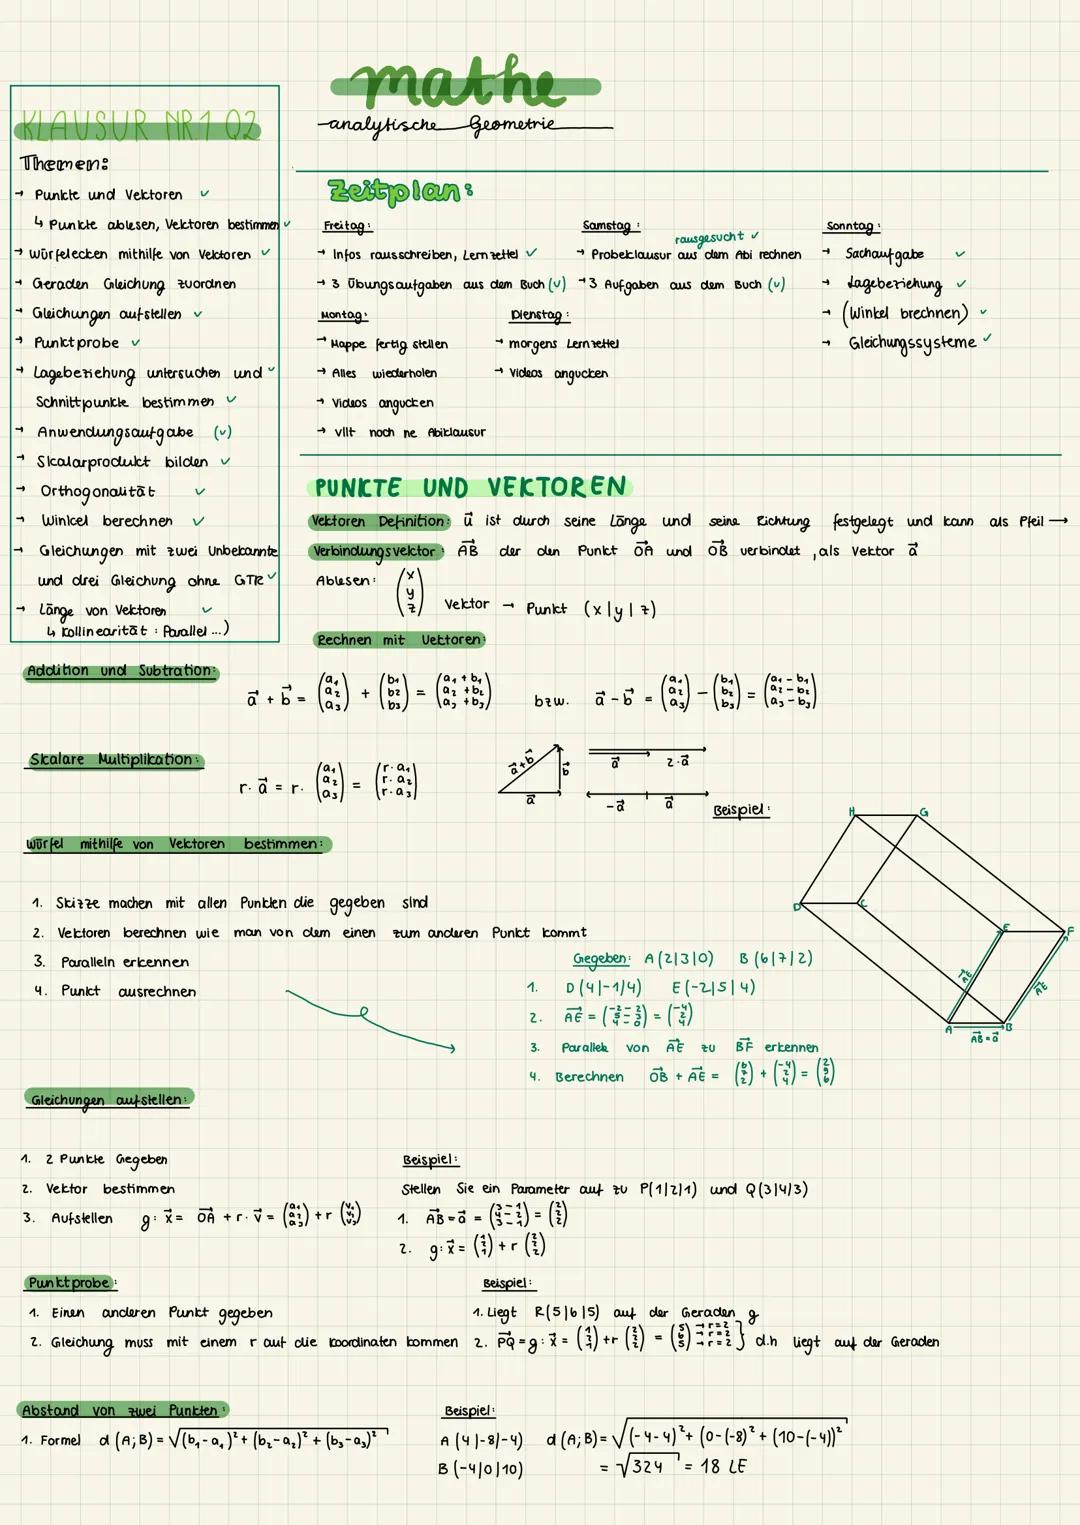 mathe
analytische Geometrie
KLAUSUR NR1 Q2
Themen:
→ Punkte und Vektoren ✓
↳ Punkte ablesen, Vektoren bestimmen ✓
→ Würfelecken mithilfe von Vektoren ✓
→ Geraden Gleichung zuordnen
→ Gleichungen aufstellen ✓
→ Punktprobe ✓
→ Lagebeziehung untersuchen und ✓
Schnittpunkte bestimmen ✓
→ Anwendungsaufgabe (✓)
→ Skalarprodukt bilden ✓
→ Orthogonalität ✓
→ Winkel berechnen ✓
→ Gleichungen mit zwei Unbekannte
und drei Gleichung ohne GTR ✓
→ Länge von Vektoren ✓
↳ Kollinearität : Parallel ...)
Zeitplan:
Freitag:
→ Infos rausschreiben, Lernzettel ✓
→ 3 Übungsaufgaben aus dem Buch (✓)
Samstag:
rausgesucht ✓
→ Probeklausur aus dem Abi rechnen
→ 3 Aufgaben aus dem Buch (✓)
Sonntag:
→ Sachaufgabe ✓
→ Lagebeziehung ✓
→ (Winkel brechnen) ✓
→ Gleichungssysteme ✓
Montag:
→ Mappe fertig stellen
→ Alles wiederholen
→ Videos angucken
→ vllt noch ne Abiklausur
Dienstag:
→ morgens Lernzettel
→ Videos angucken
PUNKTE UND VEKTOREN
Vektoren Definition: u⃗ ist durch seine Länge und seine Richtung festgelegt und kann als Pfeil →
Verbindungsvektor: AB⃗ der den Punkt OA⃗ und OB⃗ verbindet, als Vektor a⃗
Ablesen: (x y z) Vektor → Punkt (x|y|z)
Rechnen mit Vektoren:
Addition und Subtration:
a⃗ + b⃗ = (a₁ a₂ a₃) + (b₁ b₂ b₃) = (a₁+b₁ a₂+b₂ a₃+b₃) bzw. a⃗ - b⃗ = (a₁ a₂ a₃) - (b₁ b₂ b₃) = (a₁-b₁ a₂-b₂ a₃-b₃)
Skalare Multiplikation:
r · a⃗ = r · (a₁ a₂ a₃) = (r·a₁ r·a₂ r·a₃)
a⃗+b⃗ b⃗ a⃗
a⃗ 2·a⃗
-a⃗ a⃗
Würfel mithilfe von Vektoren bestimmen:
1. Skizze machen mit allen Punkten die gegeben sind
2. Vektoren berechnen wie man von dem einen zum anderen Punkt kommt
3. Paralleln erkennen
4. Punkt ausrechnen
Beispiel:
H G
D C
E F
AE⃗ AE⃗
A B
AB⃗ = a⃗
Gegeben: A(2|3|0) B(6|7|2)
1. D(4|-1|4) E(-2|5|4)
2. AE⃗ = (-2-2 5-3 4-0) = (-4 2 4)
3. Parallele von AE⃗ zu BF⃗ erkennen
4. Berechnen OB⃗ + AE⃗ = (6 7 2) + (-4 2 4) = (2 9 6)
Gleichungen aufstellen:
1. 2 Punkte Gegeben
2. Vektor bestimmen
3. Aufstellen g: x⃗ = OA⃗ + r · v⃗ = (a₁ a₂ a₃) + r (v₁ v₂ v₃)
Beispiel:
Stellen Sie ein Parameter auf zu P(1|2|1) und Q(3|4|3)
1. AB⃗ = a⃗ = (3-1 4-2 3-1) = (2 2 2)
2. g: x⃗ = (1 2 1) + r (2 2 2)
Punktprobe:
1. Einen anderen Punkt gegeben
2. Gleichung muss mit einem r auf die Koordinaten kommen
Beispiel:
1. Liegt R(5|6|5) auf der Geraden g
2. PQ⃗ = g: x⃗ = (1 2 1) + r (2 2 2) = (5 6 5) → r=2 → r=2 → r=2 } d.h liegt auf der Geraden
Abstand von zwei Punkten:
1. Formel d(A;B) = √((b₁-a₁)² + (b₂-a₂)² + (b₃-a₃)²
Beispiel:
A (4|-8|-4) d(A;B) = √((-4-4)² + (0-(-8)² + (10-(-4))²
B (-4|0|10) = √324 = 18 LE